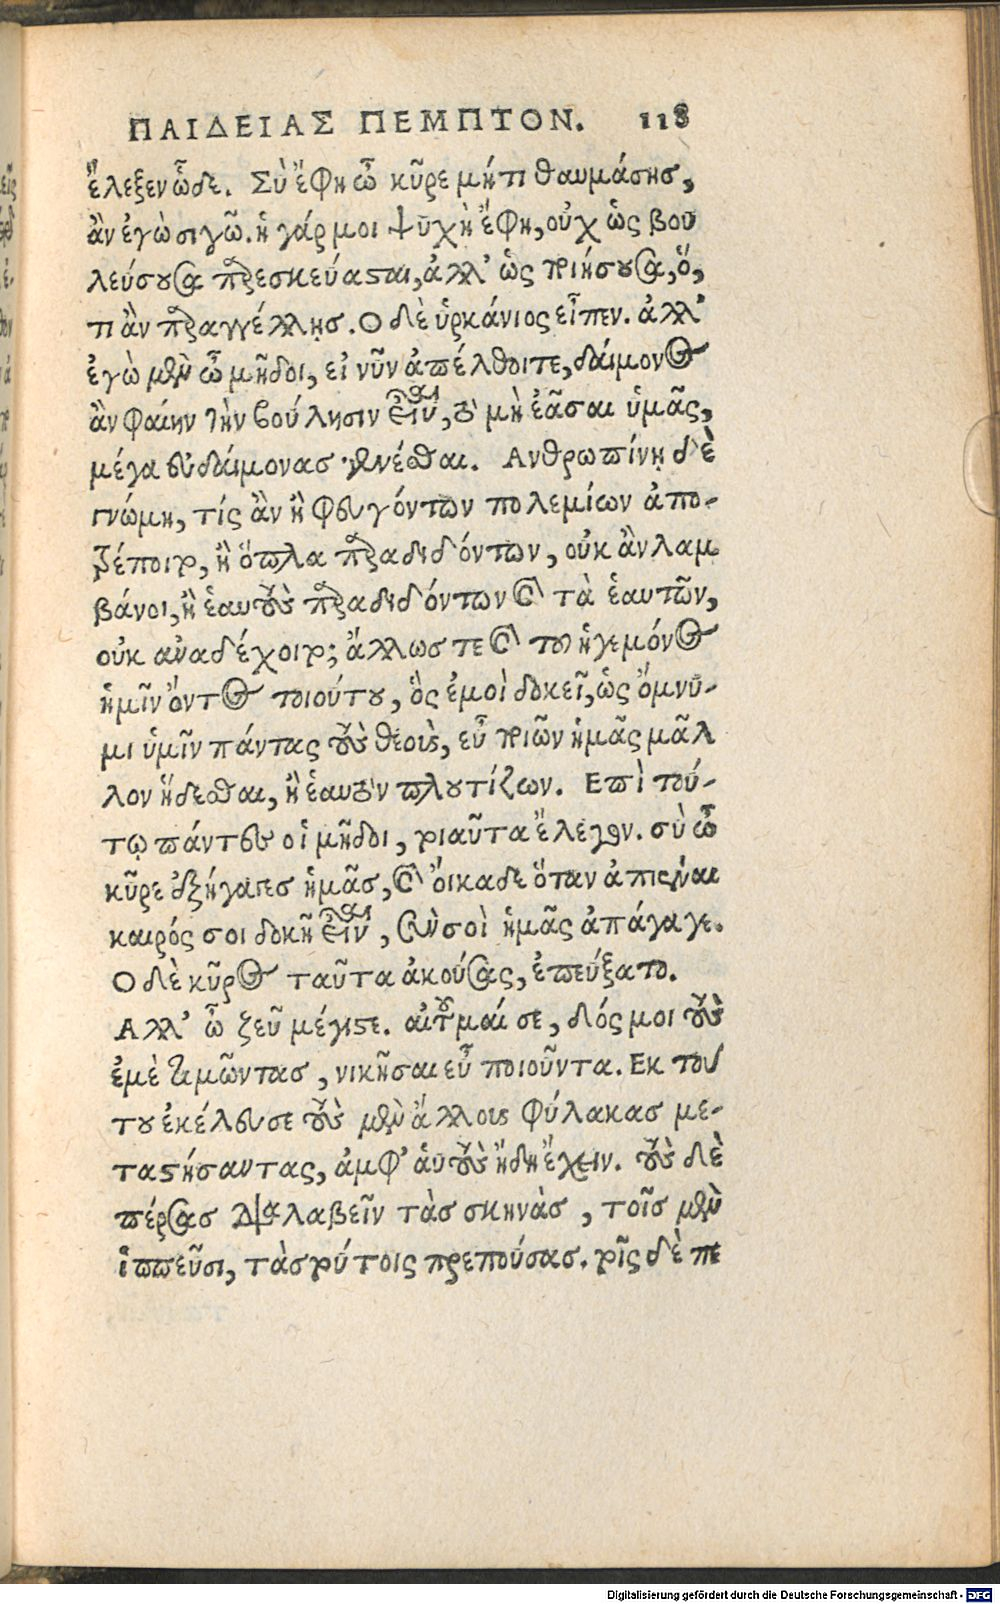 ΠΑΙΔΕΙΑΣ ΠΕΜΠΤΟΝ. 118
ἔλεξεν ὧδε. Σὺ ἔφη ὦ κῦρε μήτι θαυμάσης,
ἂν ἐγὼ σιγῶ. ἡ γάρ μοι ψυχὴ ἔφη, οὐχ ὡς βου
λεύσουσα παρεσκεύασται, ἀλλ' ὡς ποιήσουσα, ὅ,
τι ἂν παραγγέλλης. Ο δὲ ὑρκάνιος εἶπεν. ἀλλ'
ἐγὼ μὲν ὦ μῆδοι, εἰ νῦν ἀπέλθοιτε, δάιμονος
ἂν φαίην τὴν βούλησιν εἶναι, τὸ μὴ ἐᾶσαι ὑμᾶς,
μέγα εὐδάιμονας γενέσθαι. Ανθρωπίνῃ δὲ
γνώμῃ, τίς ἂν ἢ φευγόντων πολεμίων ἀπο-
τρέποιτο, ἢ ὅπλα παραδιδόντων, οὐκ ἂν λαμ
βάνοι, ἢ ἑαυτοὺς παραδιδόντων καὶ τὰ ἑαυτῶν,
οὐκ ἀναδέχοιτο; ἄλλως τε καὶ τοῦ ἡγεμόνος
ἡμῖν ὄντος τοιούτου, ὃς ἐμοὶ δοκεῖ, ὡς ὄμνυ-
μι ὑμῖν πάντας τοὺς θεοὺς, εὖ ποιῶν ἡμᾶς μᾶλ
λον ἥδεσθαι, ἢ ἑαυτὸν πλουτίζων. Επὶ τού-
τῳ πάντες οἱ μῆδοι, τοιαῦτα ἔλεγον. σὺ ὦ
κῦρε ἐξήγαγες ἡμᾶς, καὶ ὄικαδε ὅταν ἀπιέναι
καιρός σοι δοκῆ εἶναι, σὺν σοὶ ἡμᾶς ἀπάγαγε.
Ο δὲ κῦρος ταῦτα ἀκούσας, ἐπεύξατο.
Αλλ' ὦ ζεῦ μέγιστε. αἰτοῦμαί σε, δός μοι τοὺς
ἐμὲ τιμῶντας, νικῆσαι εὖ ποιοῦντα. Εκ τού
του ἐκέλευσε τοὺς μὲν ἄλλους φύλακας με-
ταστήσαντας, ἀμφ' αὑτοὺς ἤδη ἔχειν. τοὺς δὲ
πέρσας διαλαβεῖν τὰς σκηνὰς, τοῖς μὲν
ἱππεῦσι, τὰς τούτοις πρεπούσας. τοῖς δὲ πε
Digitalisierung gefördert durch die Deutsche Forschungsgemeinschaft - DFG